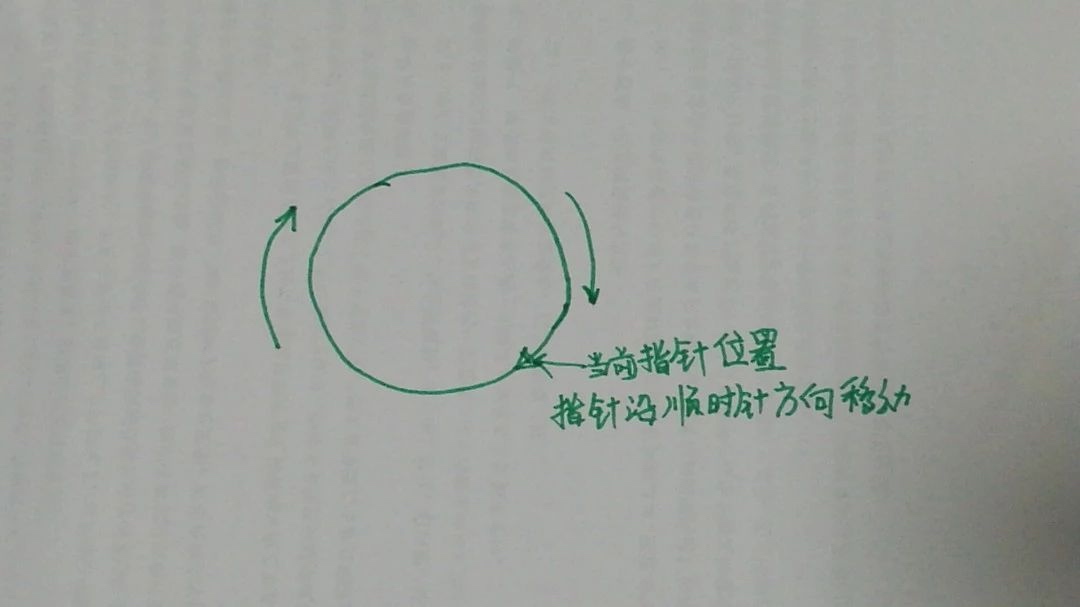 当前指针位置
指针沿顺时针方向移动